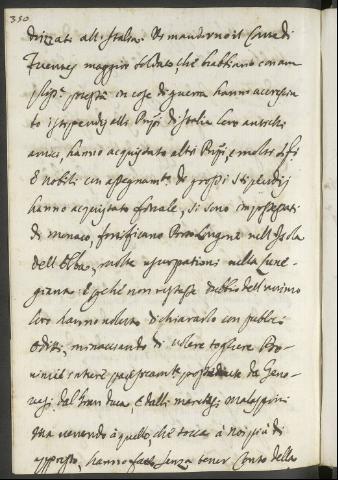 350
drizzati all'Italia. Vi mandorno il Conte di
Fuentes maggior soldato, che habbiano con am
in cose di guerra hanno accresciu
to i stipendij alli Prīpi di Italia loro antichi
amici, hanno acquistato altri Prīpi, e molti
e nobili con assegnamti di grossi stipendij
hanno acquistato finale, si sono impossessati
di monaco, fortificano Porto Longone nell'Isola
dell'Elba, molte usurpationi nella Luni-
giana: e perche non restasse dubbio dell'animo
loro hanno voluto dichiararlo con publici
editti, minacciando di volere togliere Pro-
vincie e terre pacificamente possedute da Geno-
vesi, dal Gran Duca, e dalli marchesi malaspini
ma venendo à quello, che tocca à noi più di
appresso, hanno senza tener conto della